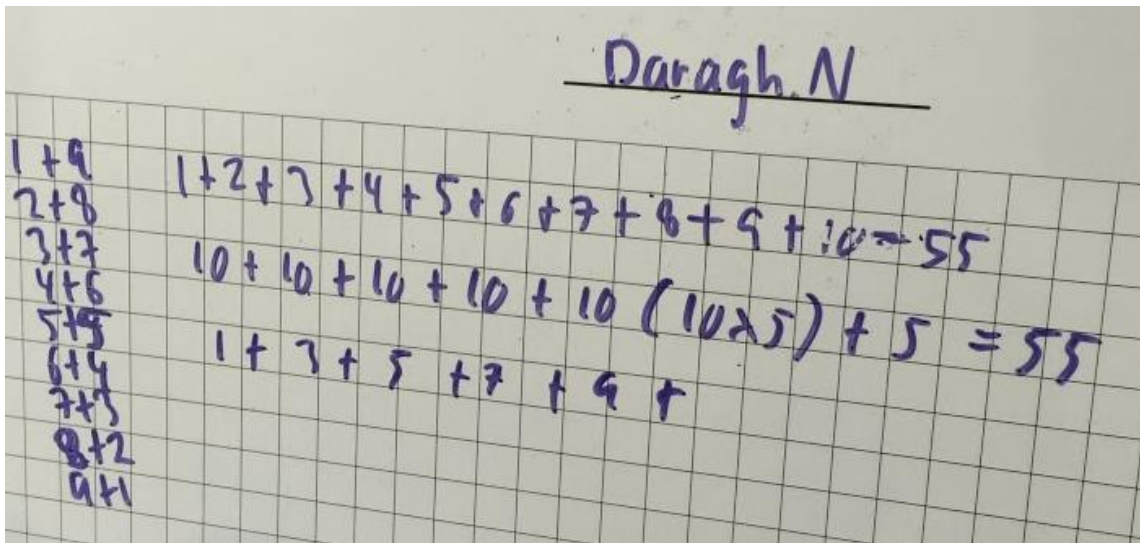 Daragh. N
1+9
2+8
3+7
4+6
5+5
6+4
7+3
8+2
9+1
1+2+3+4+5+6+7+8+9+10=55
10+10+10+10+10 (10x5)+5=55
1+3+5+7+9+